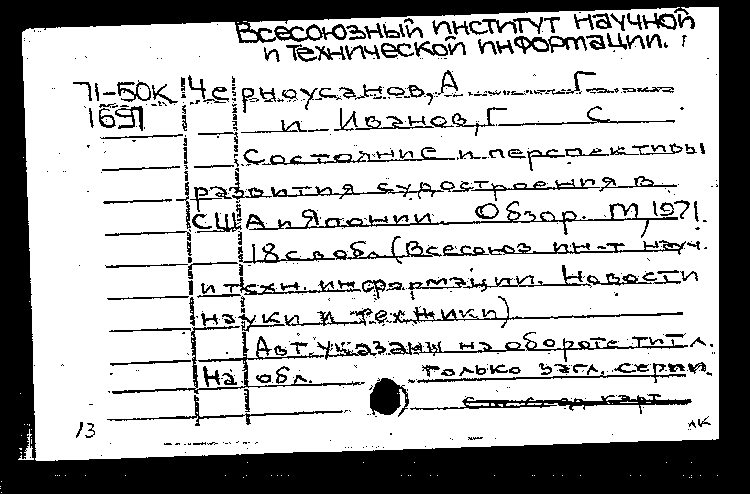 Всесоюзный институт научной
и технической информации.
71-50К Черноусанов, А Г
1691 и Иванов, Г С
Состояние и перспективы
развития судостроения в
США и Японии. Обзор. М, 1971.
18 с в обл. (Всесоюз. ин-т науч.
и техн. информации. Новости
науки и техники)
Авт. указаны на обороте тит. л.
На обл. только загл. серии.
См. след. карт
13